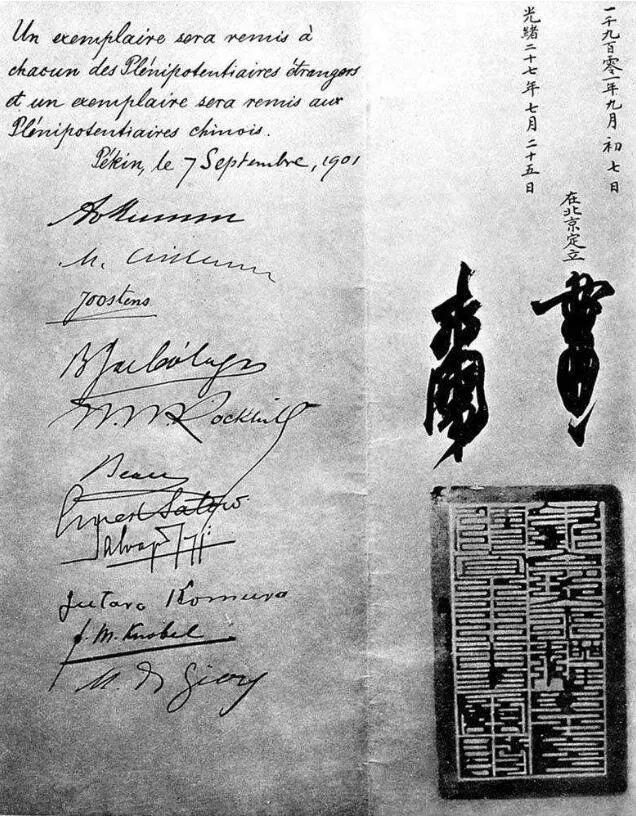 Un exemplaire sera remis à
chacun des Plénipotentiaires étrangers
et un exemplaire sera remis aux
Plénipotentiaires chinois.
Pékin, le 7 Septembre, 1901
A v Mumm
M. Czikann
Joostens
B J de Cólogan
W. W. Rockhill
Beau
Ernest Satow
Salvago Raggi
Jutaro Komura
F. M. Knobel
M. de Giers
一千九百零一年九月初七日
在北京定立
光緒二十七年七月二十五日